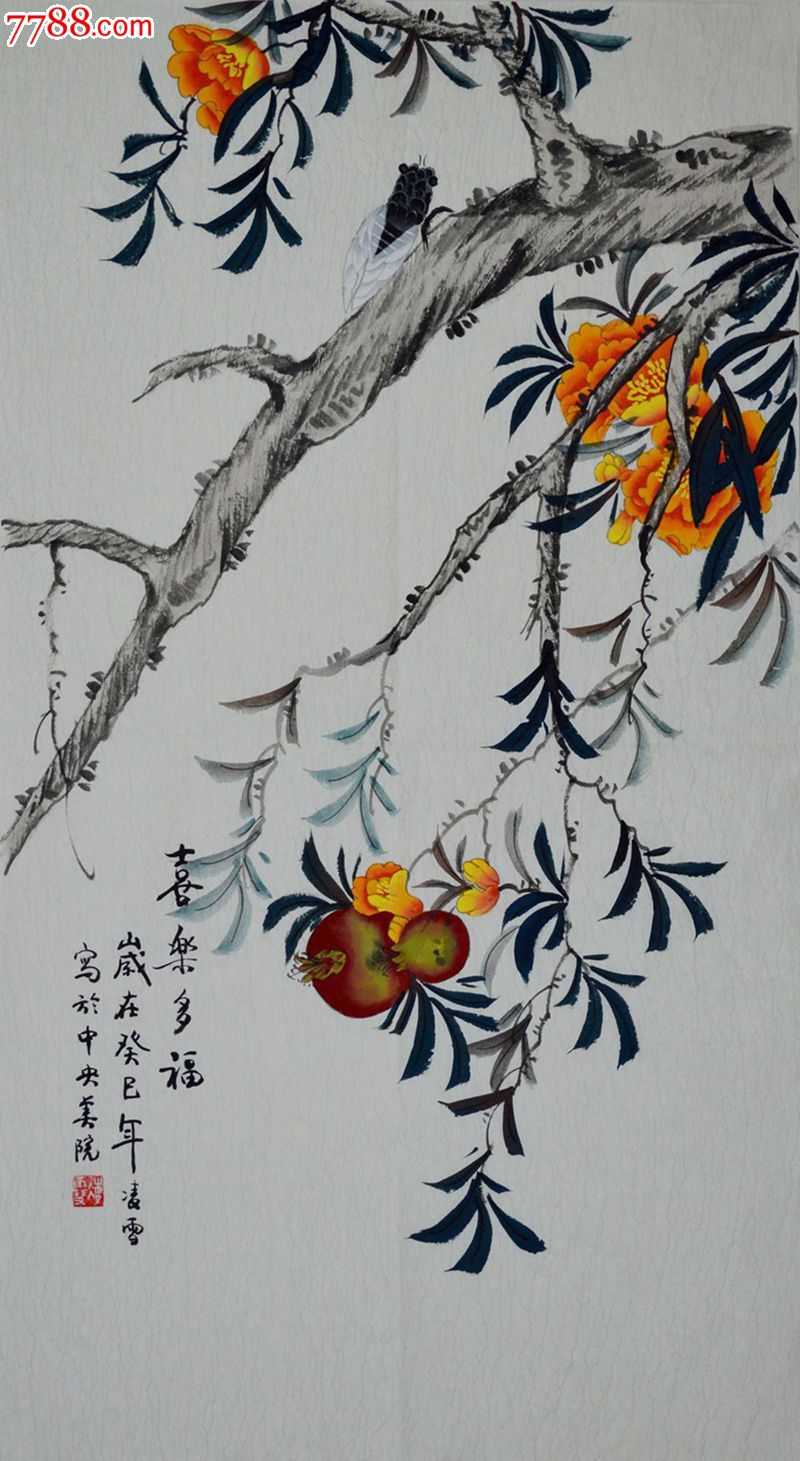 7788.com
喜樂多福
歲在癸巳年凌雪
寫於中央美院